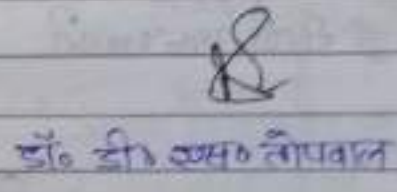 डॉ० डी० एस० तोपवाल